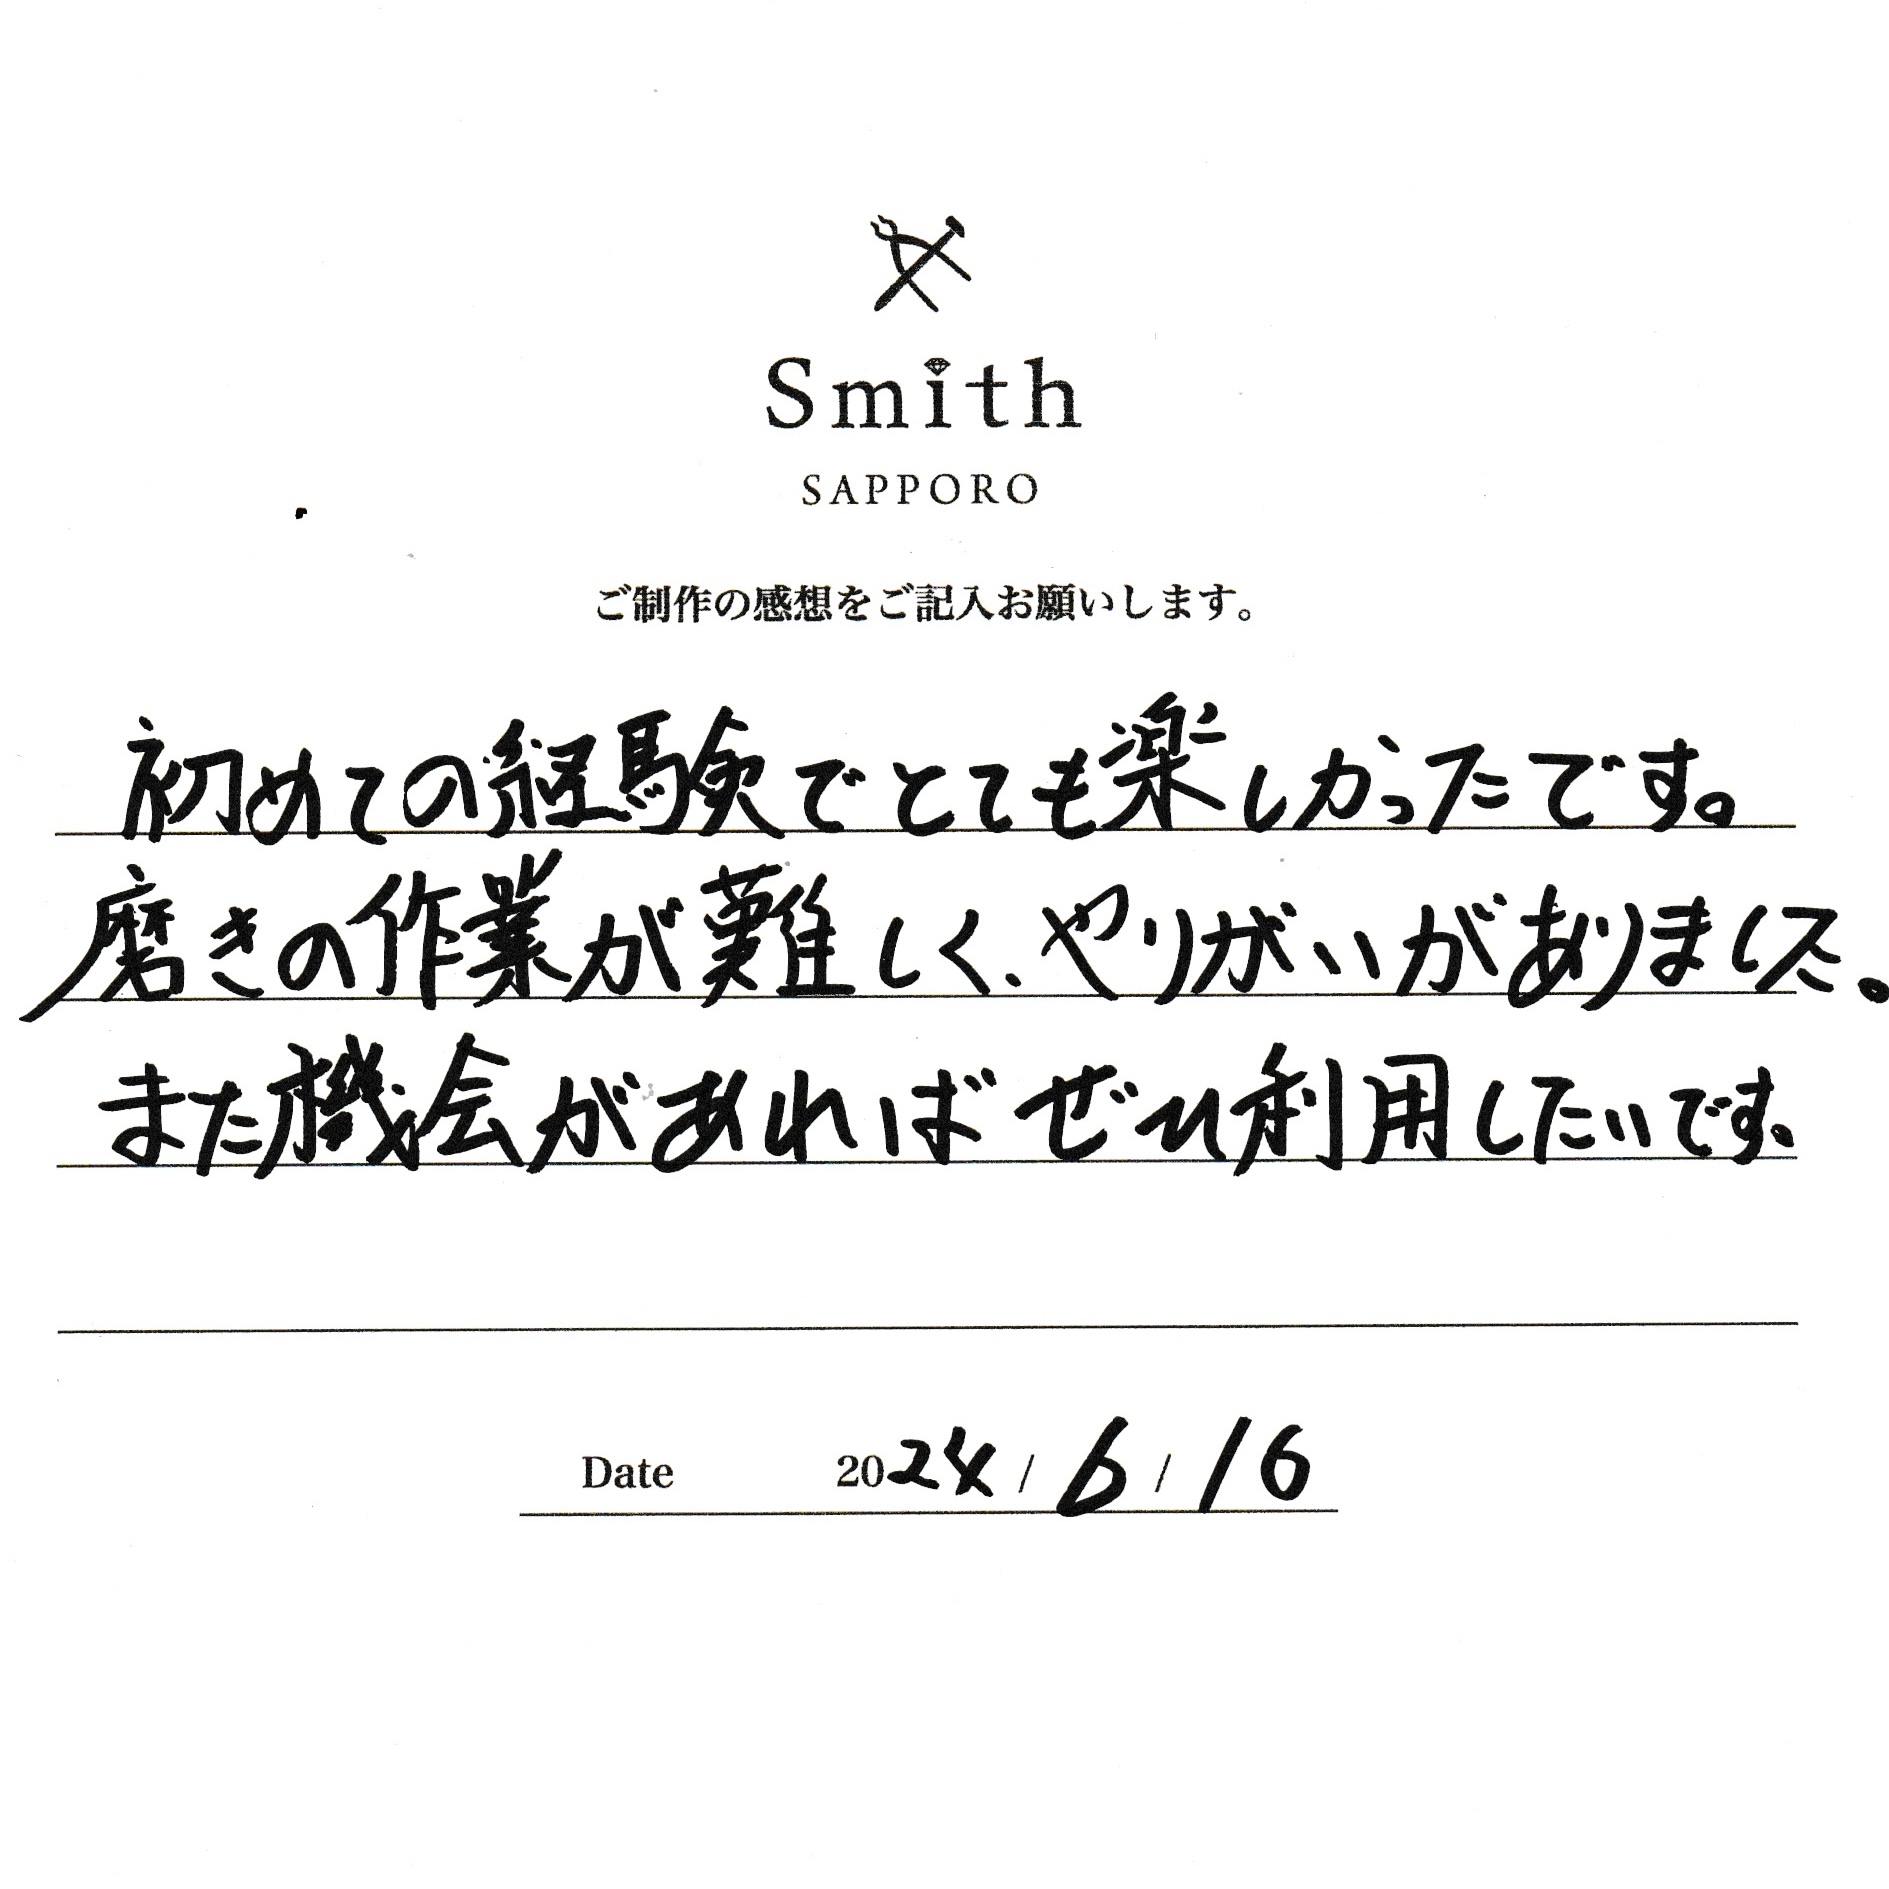 Smith
SAPPORO
ご制作の感想をご記入お願いします。
初めての経験でとても楽しかったです。
磨きの作業が難しく、やりがいがありました。
また機会があればぜひ利用したいです、
Date 2024/6/16